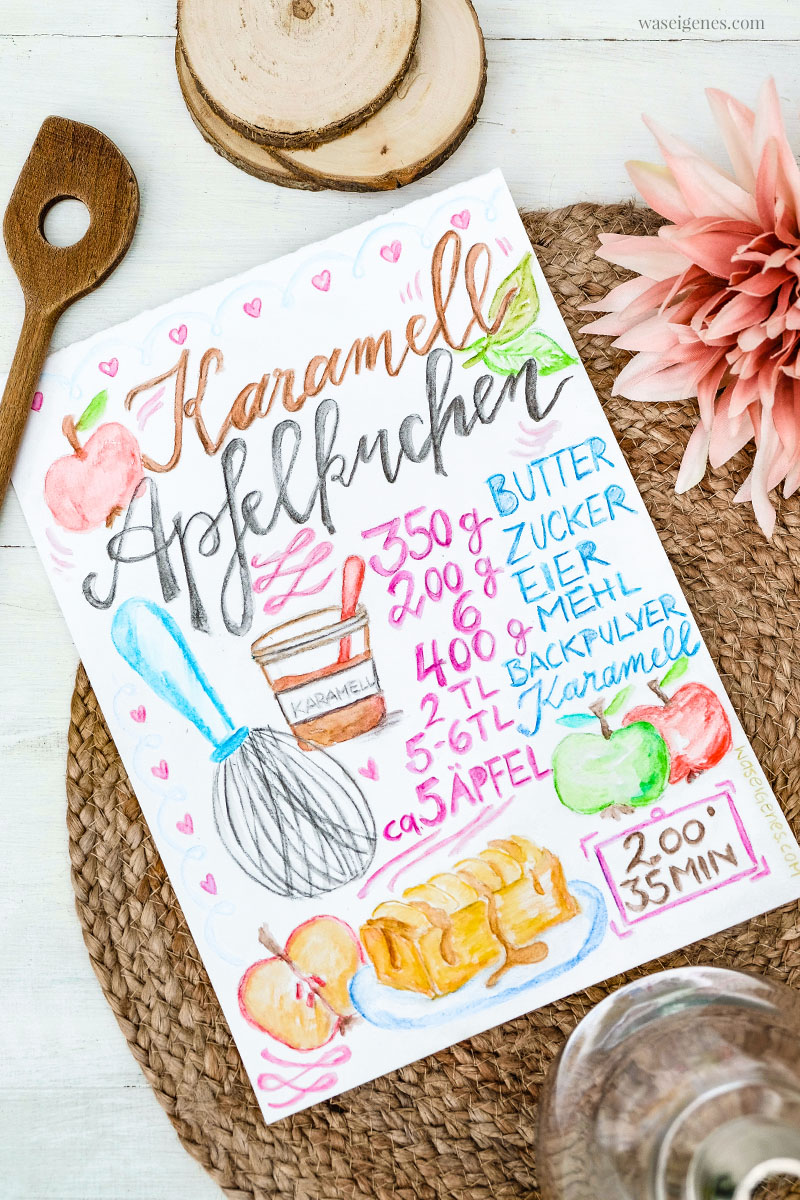 waseigenes.com
Karamell
Apfelkuchen
350 g BUTTER
200 g ZUCKER
6 EIER
400 g MEHL
2 TL BACKPULVER
5-6TL Karamell
ca 5 ÄPFEL
KARAMELL
2.00°
35 MIN
waseigenes.com